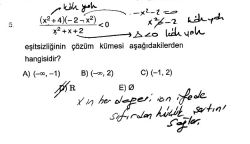 kök yok
-x²-2=0
5. (x²+4)(-2-x²) / x²+x+2 <0
x²≠-2 kök yok
Δ<0 kök yok
eşitsizliğinin çözüm kümesi aşağıdakilerden
hangisidir?
A) (-∞, -1) B) (-∞, 2) C) (-1, 2)
D) R E) Ø
x'in her değeri için ifade
sıfırdan küçük şartını
sağlar.